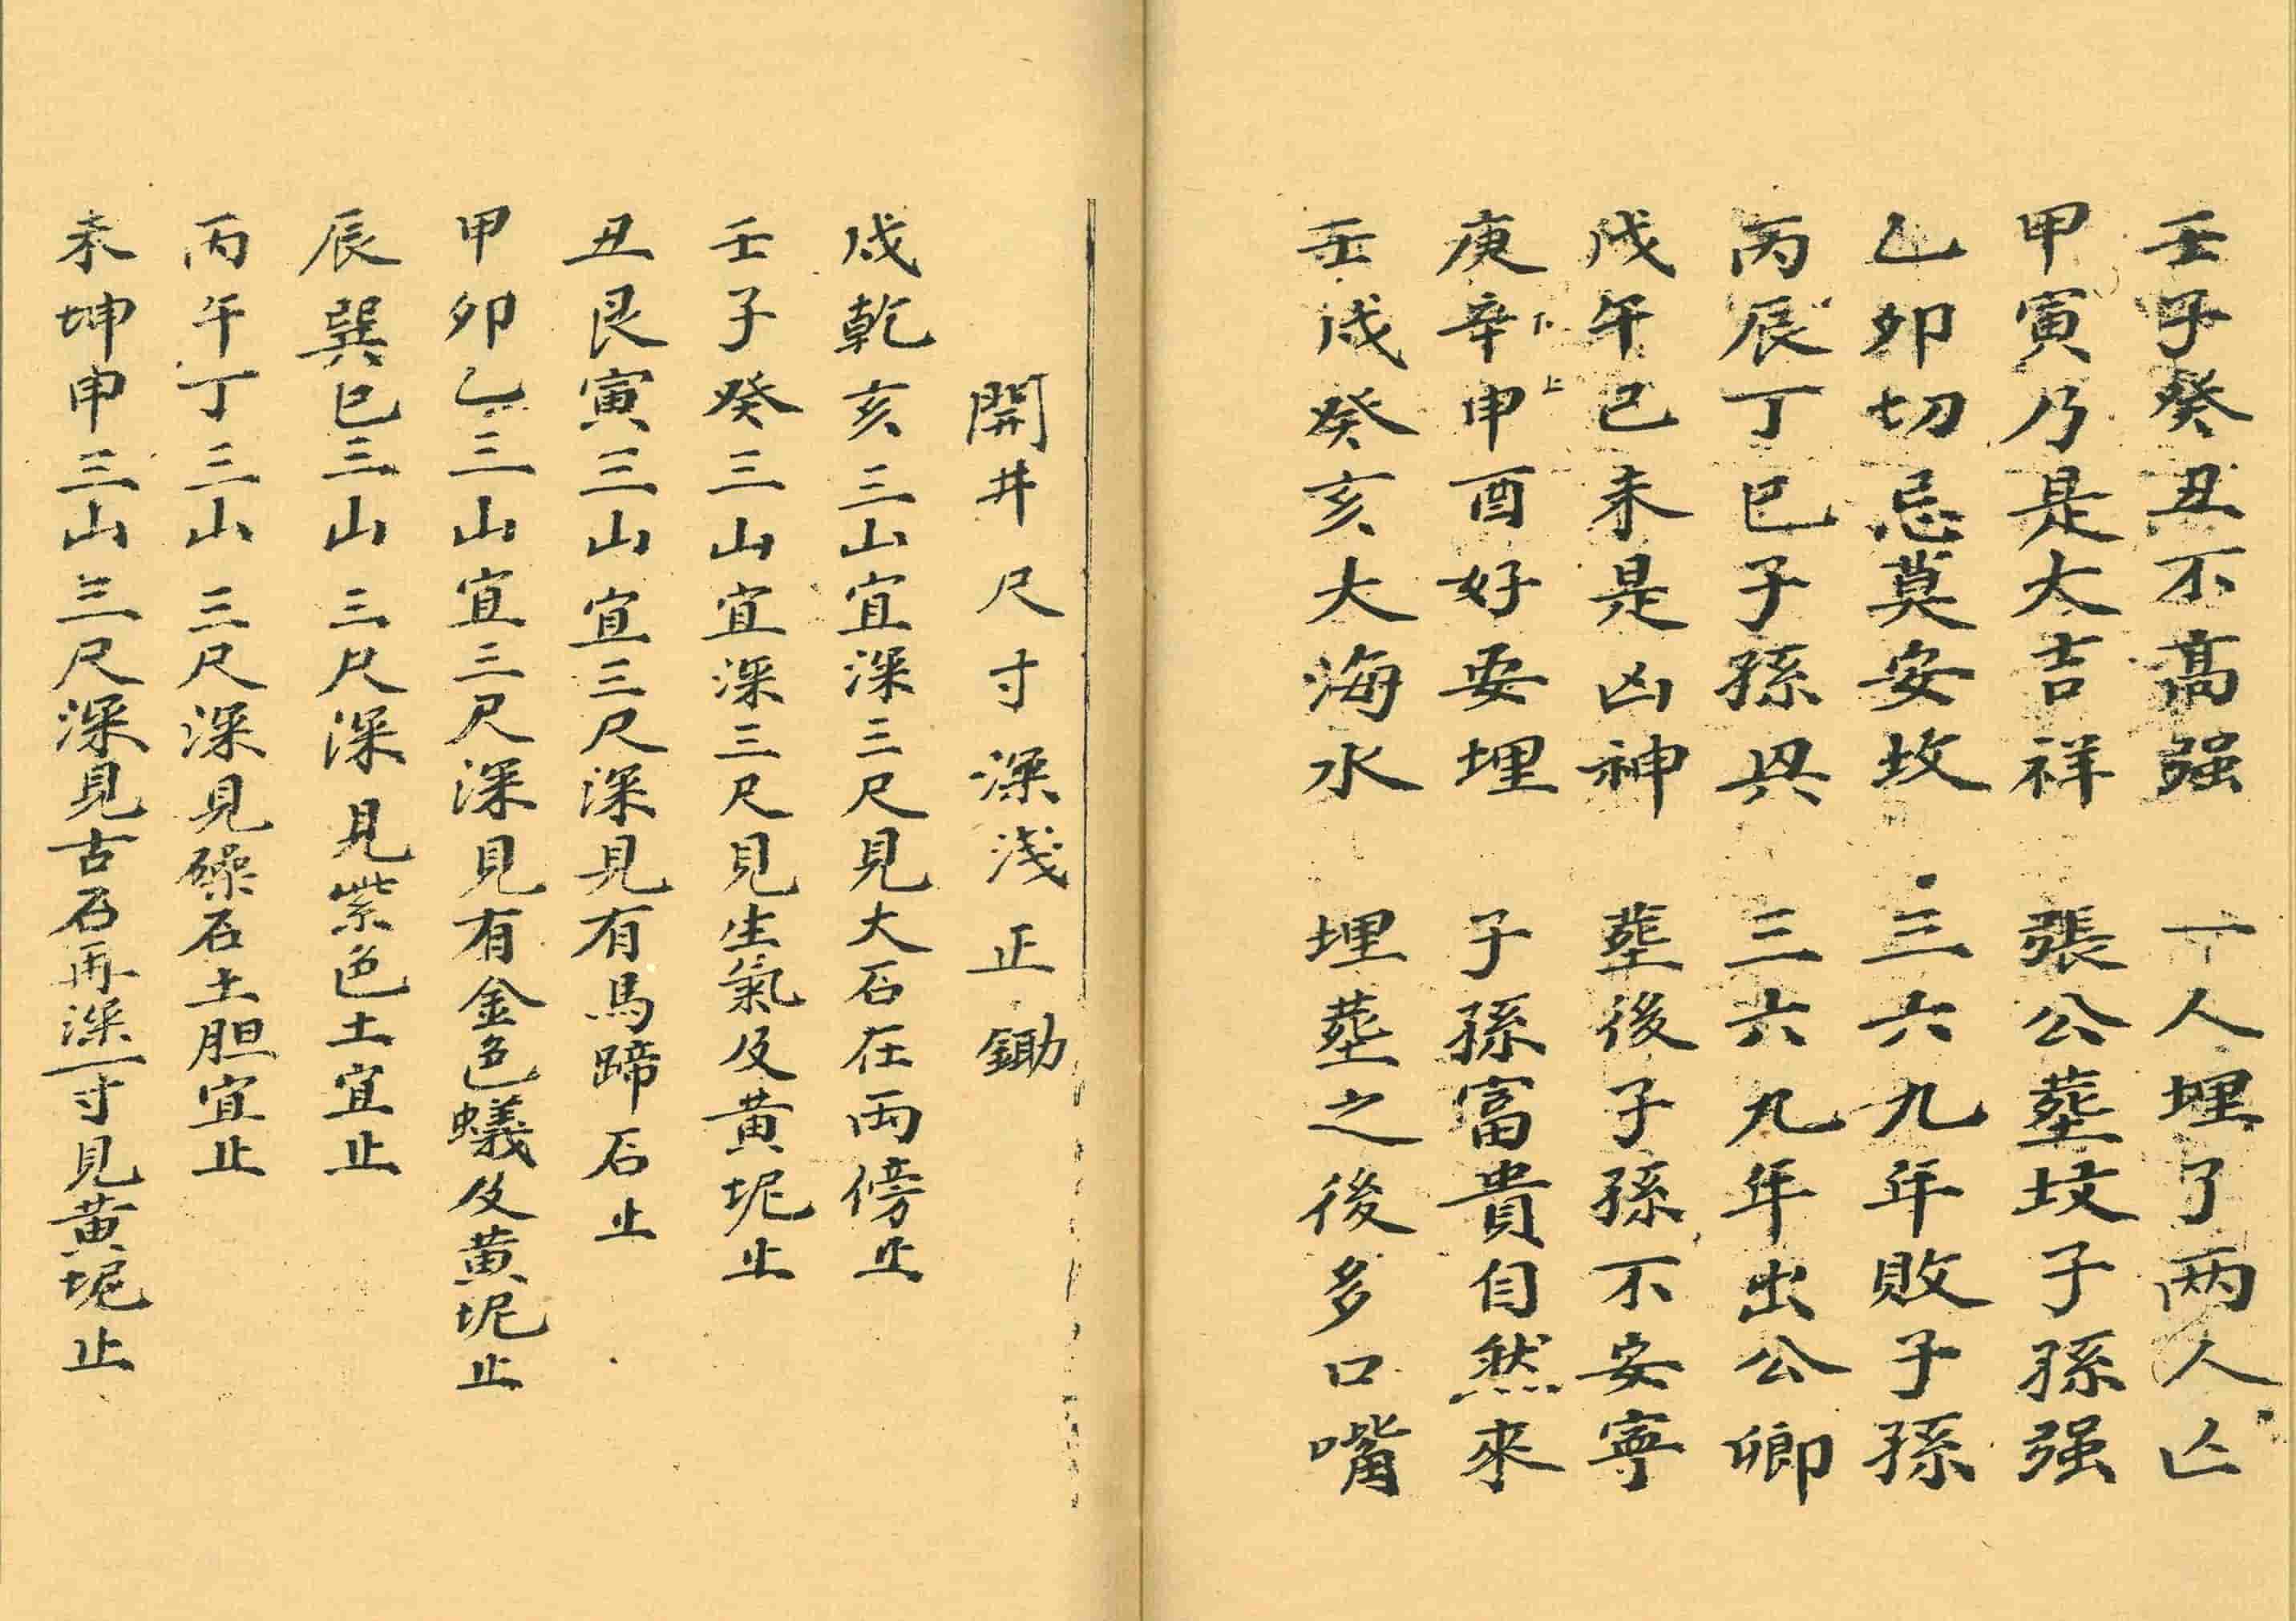 壬子癸丑不高强　一人埋了两人亡
甲寅乃是大吉祥　張公葬坟子孫强
乙卯切忌莫安坟　三六九年敗子孫
丙辰丁巳子孫興　三六九年出公卿
戊午己未是凶神　葬後子孫不安寧
庚辛申酉好安埋　子孫富貴自然來
下上
壬戌癸亥大海水　埋葬之後多口嘴
開井尺寸深淺正鋤
戌乾亥三山宜深三尺見大石在兩傍止
壬子癸三山宜深三尺見生氣及黃坭止
丑艮寅三山宜三尺深見有馬蹄石止
甲卯乙三山宜三尺深見有金色蟻及黃坭止
辰巽巳三山三尺深見紫色土宜止
丙午丁三山三尺深見磉石土胆宜止
未坤申三山三尺深見古石再深一寸見黃坭止